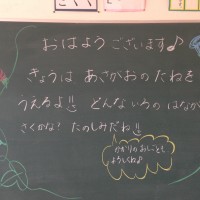 おはようございます♪
きょうは あさがおのたねを
うえるよ!! どんないろのはなが
さくかな? たのしみだね!!
かかりのおしごとも
よろしくね♪